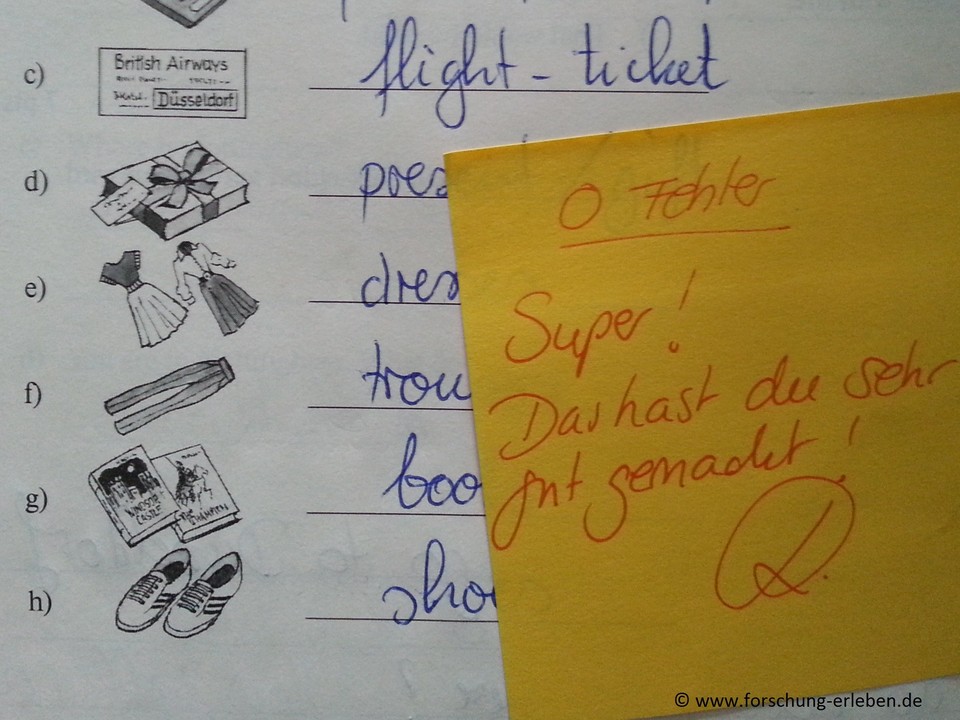 c)
British Airways
Düsseldorf
flight - ticket
d)
pres
e)
dres
f)
trou
g)
WINDSOR
CASTLE
boo
h)
sho
0 Fehler
Super!
Das hast du sehr
gut gemacht!
© www.forschung-erleben.de